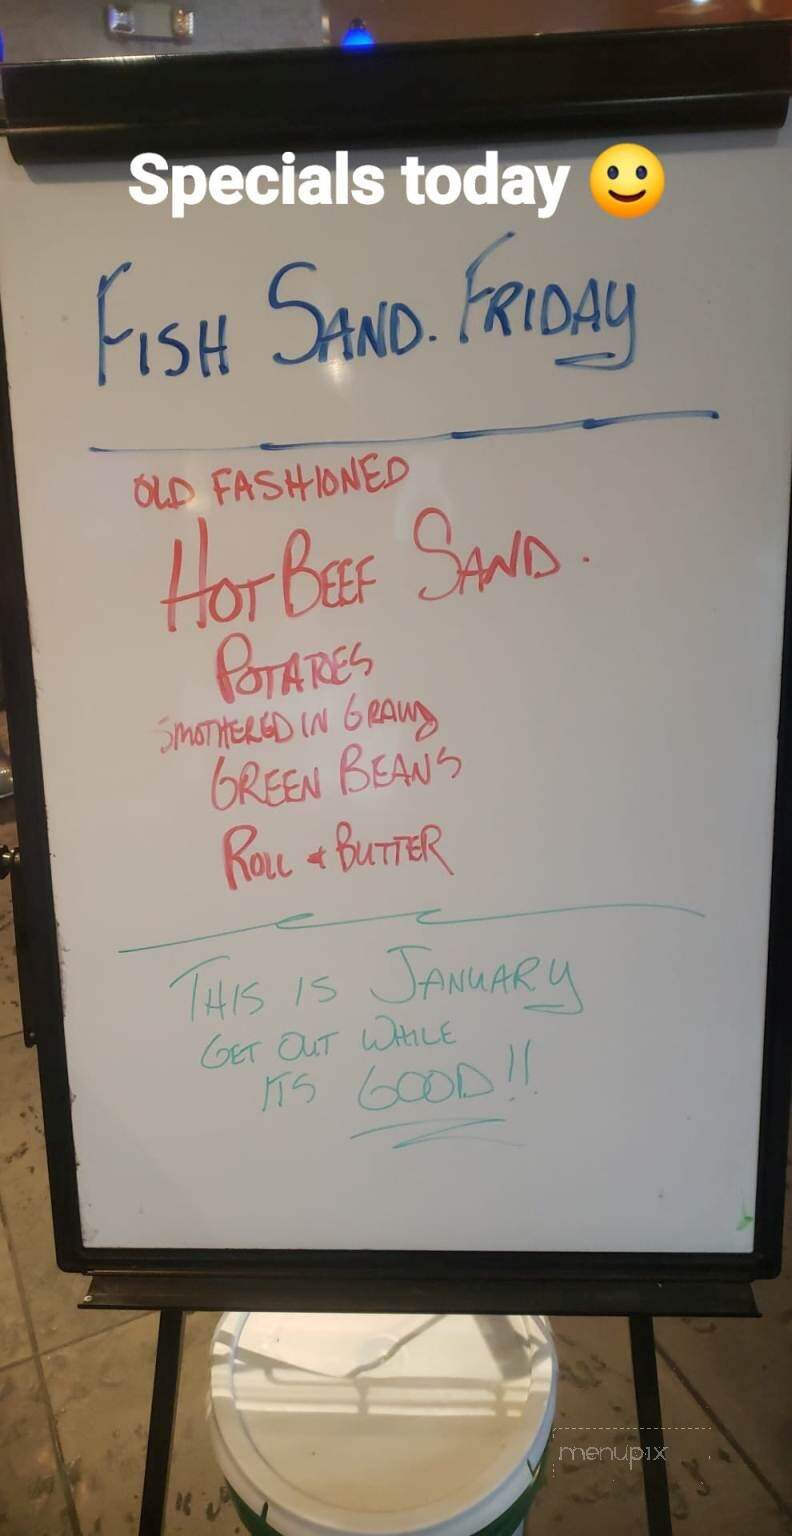 Specials today 🙂
FISH SAND. FRIDAY
OLD FASHIONED
HOT BEEF SAND.
POTATOES
SMOTHERED IN GRAVY
GREEN BEANS
ROLL & BUTTER
THIS IS JANUARY
GET OUT WHILE
ITS GOOD!!
menupix